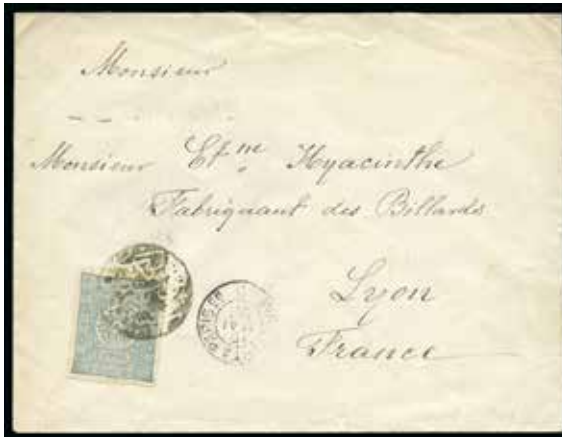 Monsieur
Monsieur Etne Hyacinthe
Fabriquant des Billards
Lyon
France